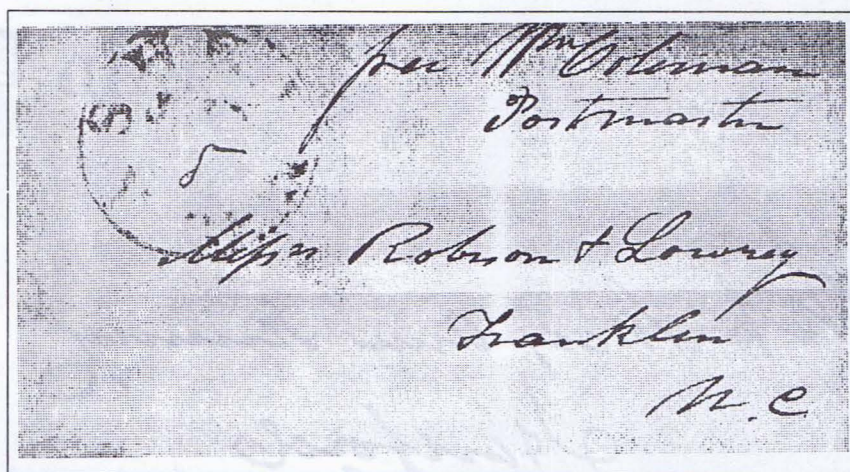 free Wm Coleman
Postmaster
5
Messrs Robson & Lowrey
Franklin
N.C